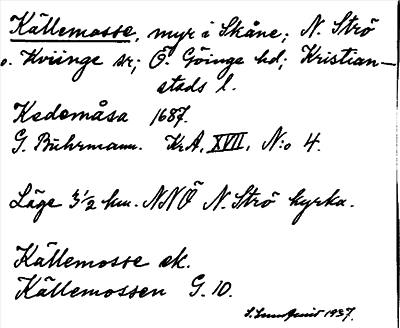 Källemosse, myr i Skåne; N. Strö
o. Kviinge sr; Ö. Göinge hd; Kristian-
stads l.
Kedemåsa 1687.
G. Buhrmann. KrA, XVII, N:o 4.
Läge 3 1/2 km. NNÖ N. Strö kyrka.
Källemosse ek.
Källemossen G. 10.
S. Lundquist 1937.